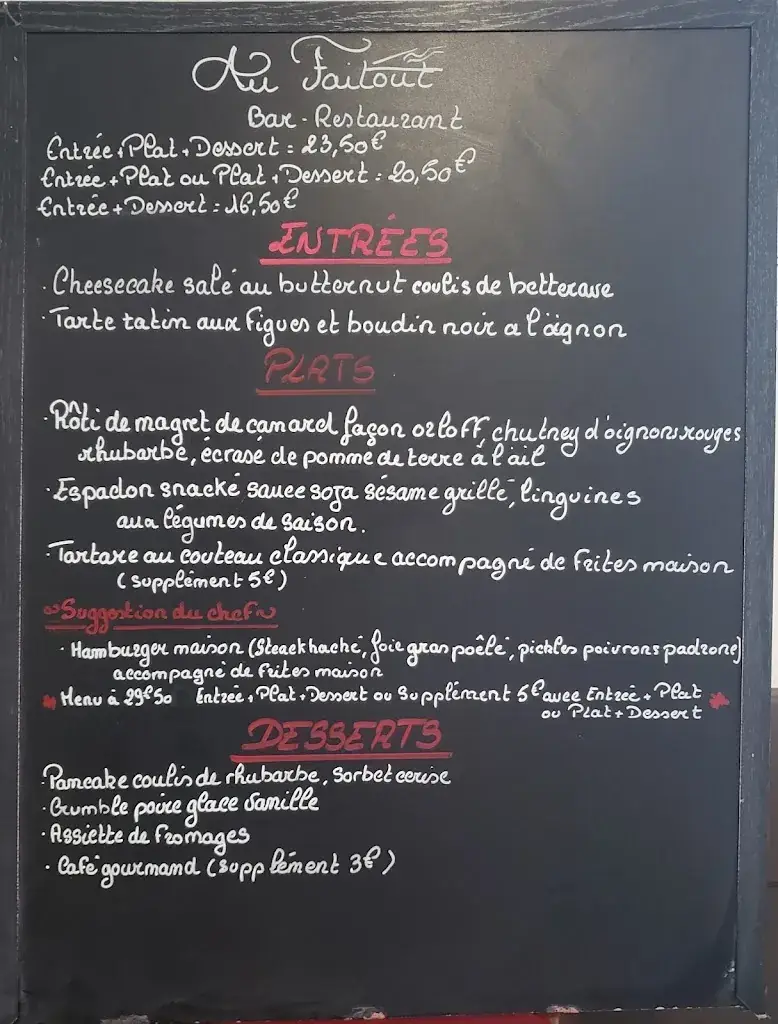 Au Faitout
Bar-Restaurant
Entrée+Plat+Dessert = 23,50€
Entrée+Plat ou Plat+Dessert = 20,50€
Entrée+Dessert = 16,50€
ENTRÉES
· Cheesecake salé au butternut coulis de betterave
· Tarte tatin aux figues et boudin noir a l'oignon
PLATS
· Rôti de magret de canard façon orloff, chutney d'oignons rouges
rhubarbe, écrasé de pomme de terre à l'ail
· Espadon snacké sauce soja sésame grillé, linguines
aux légumes de saison.
· Tartare au couteau classique accompagné de frites maison
(supplément 5€)
~Suggestion du chef~
· Hamburger maison (Steack haché, foie gras poêlé, pickles poivrons padrone)
accompagné de frites maison
* Menu à 29€50 Entrée+Plat+Dessert ou Supplément 5€ avec Entrée+Plat *
ou Plat+Dessert
DESSERTS
· Pancake coulis de rhubarbe, Sorbet cerise
· Crumble poire glace Vanille
· Assiette de Fromages
· Café gourmand (Supplément 3€)